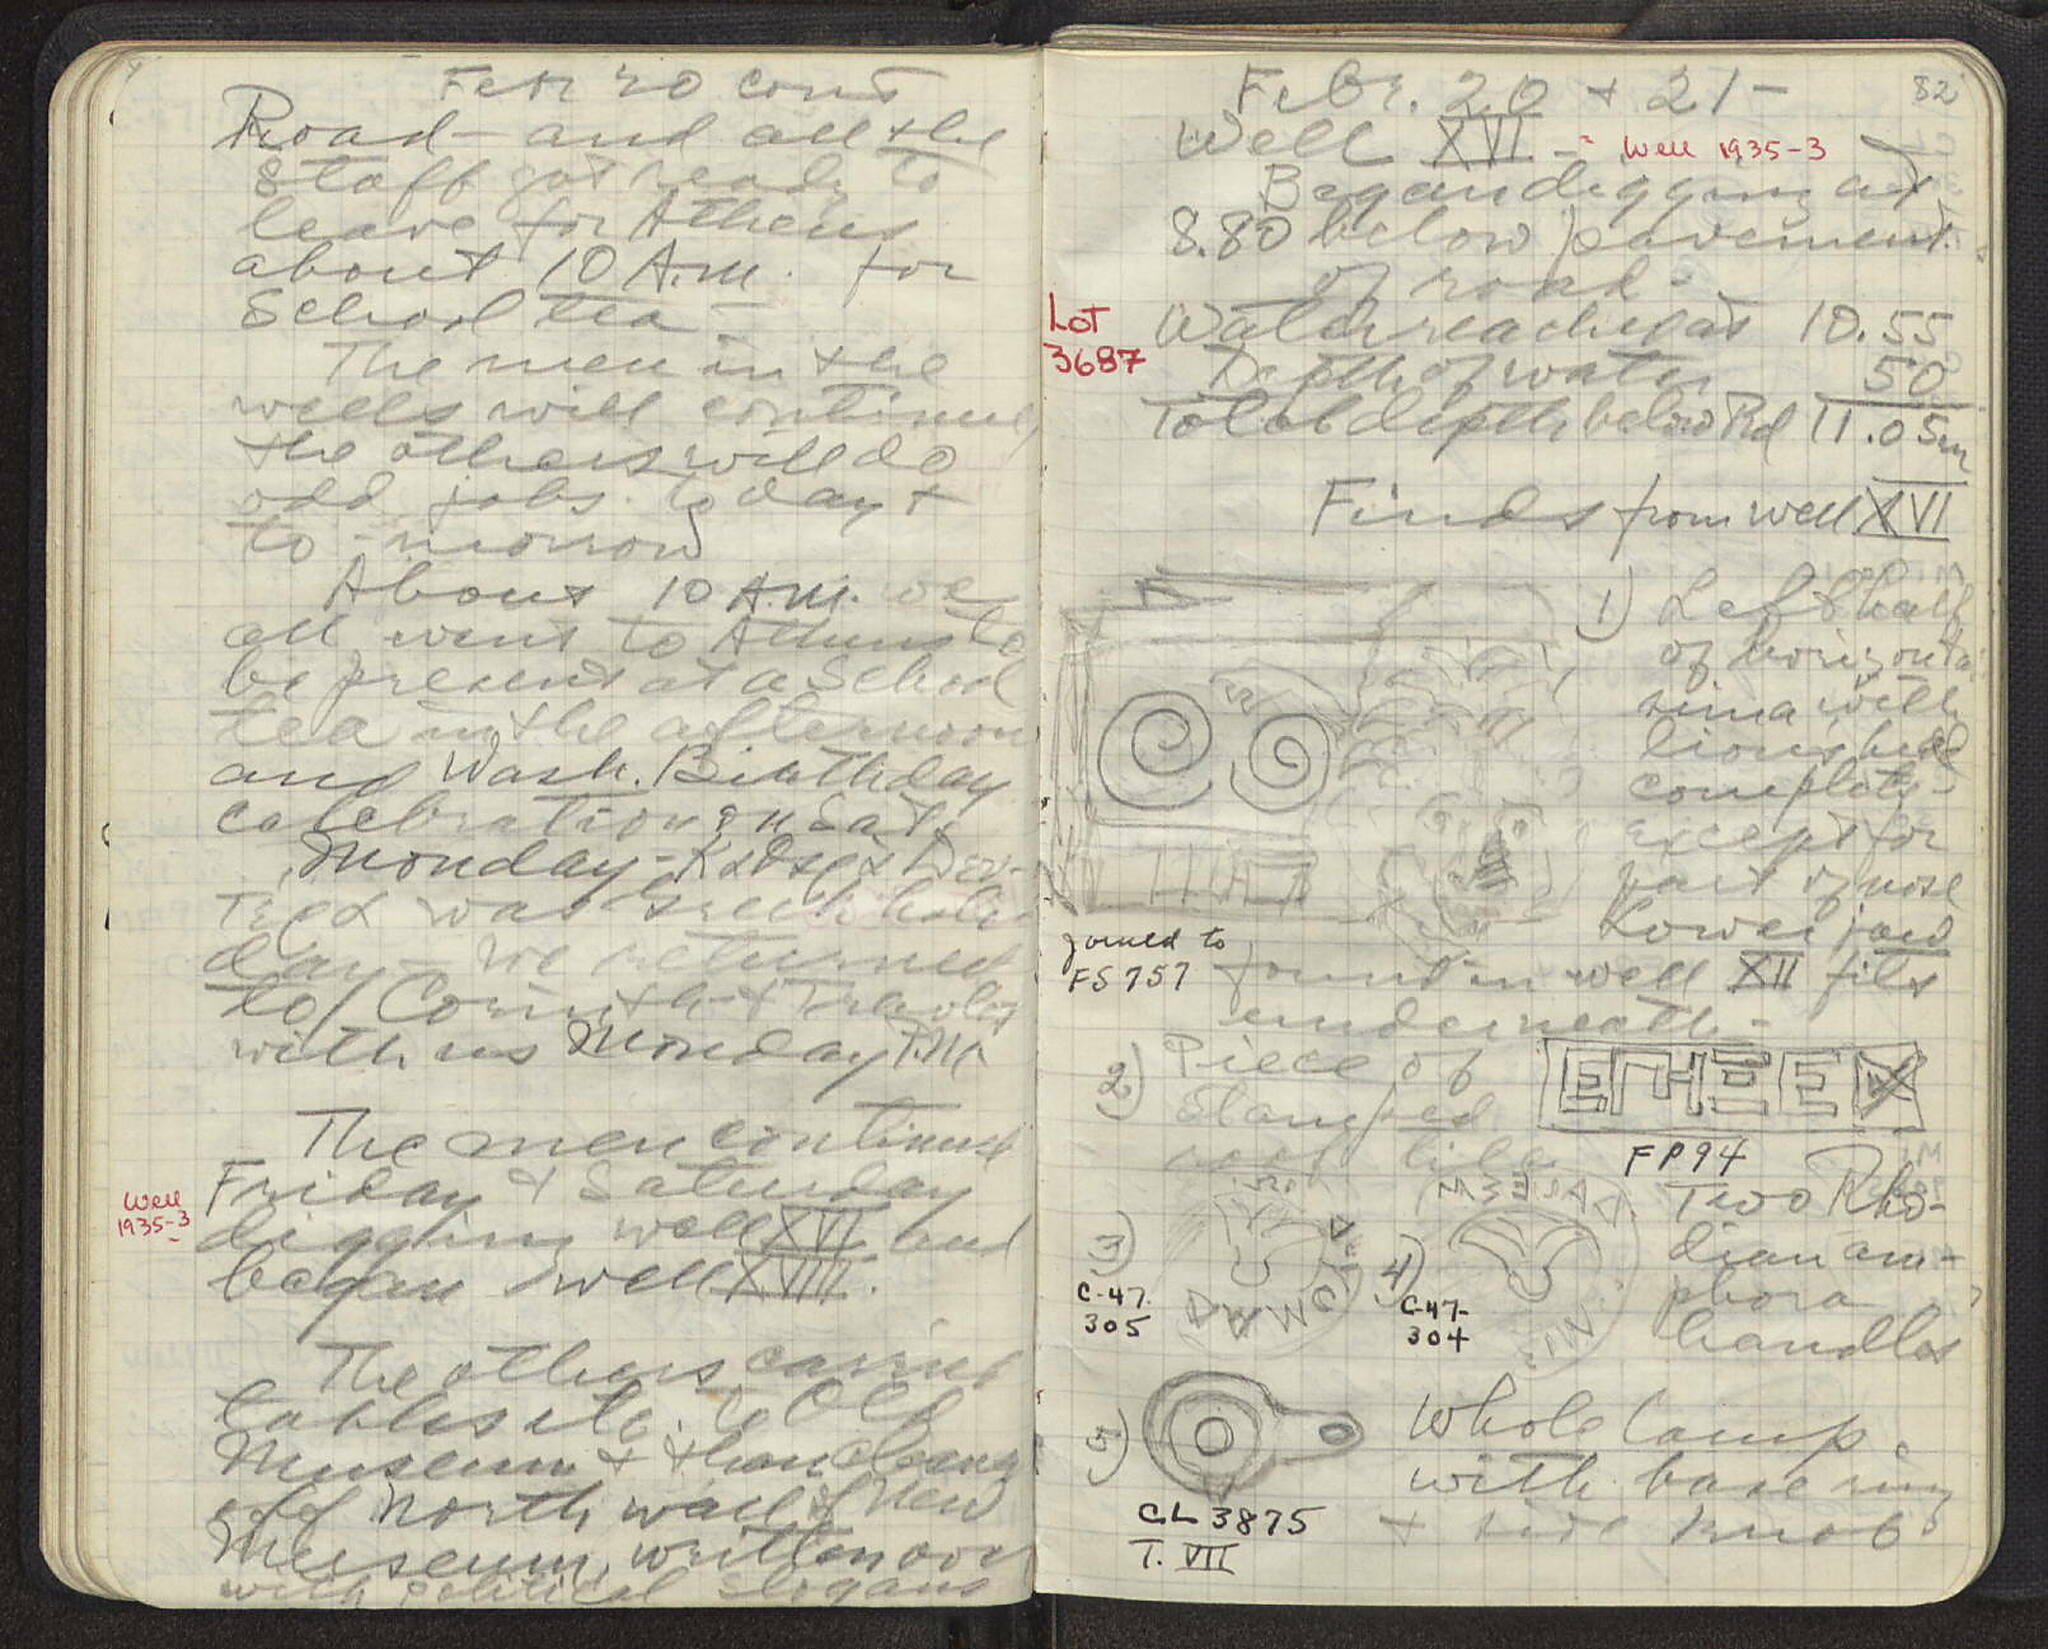 Feb 20 cont
Road - and all the
staff got ready to
leave for Athens
about 10 A.M. for
School tea -
The men in the
wells will continue,
the others will do
odd jobs to day +
to-morrow
About 10 A.M. we
all went to Athens to
be present at a School
tea in the afternoon
and Wash. Birthday
celebration on Sat.
Monday -
was Greek holi-
day - We returned
to Corinth +
with us Monday P.M.
The men continued
Friday + Saturday
Well
1935-3
digging well XVI and
began well XVIII.
The others carried
tables etc. to Old
Museum + then cleaned
off North wall of New
Museum, written over
with political slogans
82
Febr. 20 + 21 -
Well XVI - Well 1935-3
Began digging at
8.80 below pavement
of road -
Lot
3687
Water reached at 10.55
Depth of water 50
Total depth below Rd 11.05m
Finds from well XVI
1) Left half
of horizontal
sima with
lion's head
complete -
except for
part of nose
Lower jaw
joined to
FS 757
found in well XII fits
underneath -
2) Piece of
stamped
roof tile
FP 94
3)
C-47-
305
4)
C-47-
304
Two Rho-
dian am-
phora
handles
5) Whole lamp
with base ring
+ side knob
CL 3875
T. VII